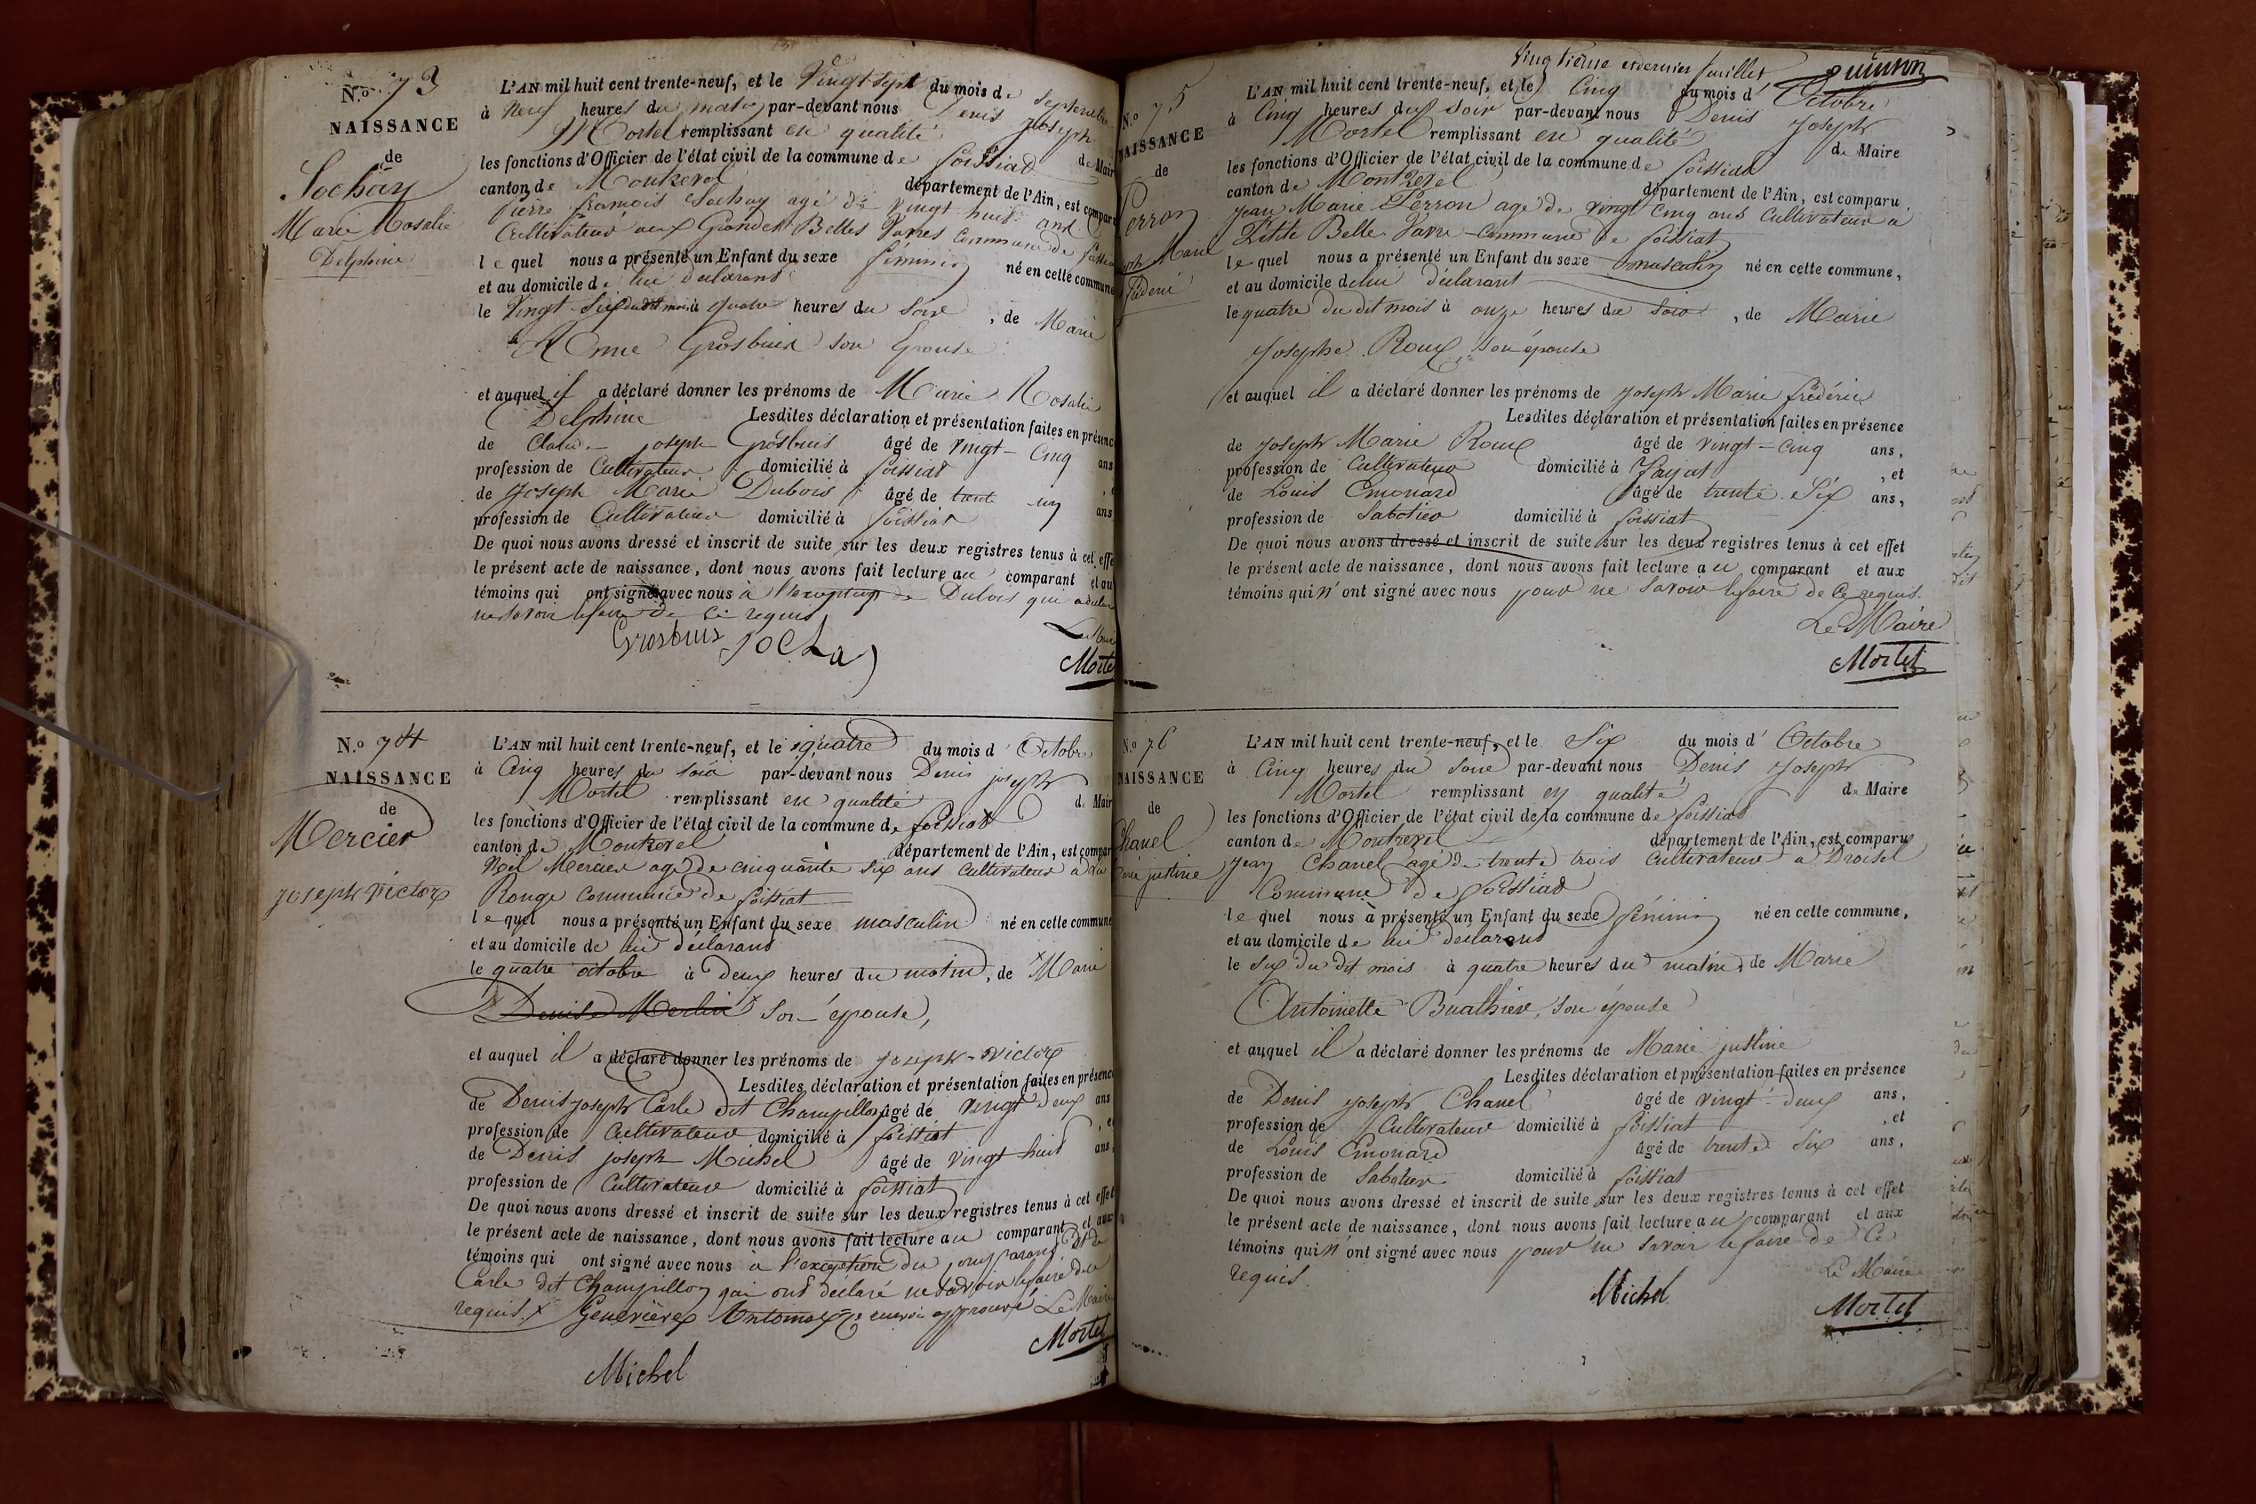 N.o 73
NAISSANCE
de
Sochay
Marie Rosalie
Delphine
L'AN mil huit cent trente-neuf, et le Vingt-sept du mois de Septembre
à neuf heures du matin par-devant nous Denis Joseph
Mortel remplissant en qualité de Mair
les fonctions d'Officier de l'état civil de la commune de foissiat
canton de Montrevel département de l'Ain, est comparu
Pierre françois Sochay agé de vingt huit ans
Cultivateur aux Grandes Belles Vavres Commune de foissiat
lequel nous a présenté un Enfant du sexe féminin né en cette commune
et au domicile de lui déclarant
le Vingt Six dudit mois à quatre heures du soir, de Marie
Anne Grosbuis son épouse
et auquel il a déclaré donner les prénoms de Marie Rosalie
Delphine Lesdites déclaration et présentation faites en présenc
de Claude joseph Grosbuis âgé de vingt-Cinq ans
profession de Cultivateur domicilié à foissiat
de Joseph Marie Dubois âgé de trente un ans
profession de Cultivateur domicilié à foissiat
De quoi nous avons dressé et inscrit de suite sur les deux registres tenus à cet effe
le présent acte de naissance, dont nous avons fait lecture au comparant et au
témoins qui ont signé avec nous à l'exception de Dubois qui a déclaré
ne savoir le faire de ce requis
Le Maire
Grosbuis Sochay
Mortel
N.o 74
NAISSANCE
de
Mercier
joseph Victor
L'AN mil huit cent trente-neuf, et le quatre du mois d'Octobre
à Cinq heures du soir par-devant nous Denis joseph
Mortel remplissant en qualité de Mair
les fonctions d'Officier de l'état civil de la commune de foissiat
canton de Montrevel département de l'Ain, est compar
Noël Mercier agé de cinquante six ans cultivateur à la
Rouge commune de foissiat
lequel nous a présenté un Enfant du sexe masculin né en cette commune
et au domicile de lui déclarant
le quatre octobre à deux heures du matin, de Marie
Denise Merlin son épouse,
et auquel il a déclaré donner les prénoms de joseph-victor
Lesdites déclaration et présentation faites en présenc
de Denis joseph Carle dit Champillon âgé de vingt deux ans
profession de Cultivateur domicilié à foissiat, e
de Denis joseph Michel âgé de vingt huit ans,
profession de Cultivateur domicilié à foissiat
De quoi nous avons dressé et inscrit de suite sur les deux registres tenus à cet effet
le présent acte de naissance, dont nous avons fait lecture au comparant et aux
témoins qui ont signé avec nous à l'exception du comparant et de
Carle dit Champillon qui ont déclaré ne savoir le faire de ce
requis x Genevière Antoinox renvoi approuvé Le Maire
Mortel
Michel
Vingtième et dernier feuillet
quinson
N.o 75
NAISSANCE
de
Perron
Joseph Marie
frédéric
L'AN mil huit cent trente-neuf, et le Cinq du mois d'Octobre
à Cinq heures du soir par-devant nous Denis Joseph
Mortel remplissant en qualité de Maire
les fonctions d'Officier de l'état civil de la commune de foissiat
canton de Montrevel département de l'Ain, est comparu
Jean Marie Perron agé de vingt Cinq ans Cultivateur à
Petite Belle Vavre Commune de foissiat
lequel nous a présenté un Enfant du sexe masculin né en cette commune,
et au domicile de lui déclarant
le quatre du dit mois à onze heures du soir, de Marie
Josephe Roux, son épouse
et auquel il a déclaré donner les prénoms de Joseph Marie frédéric
Lesdites déclaration et présentation faites en présence
de Joseph Marie Roux âgé de vingt-Cinq ans,
profession de Cultivateur domicilié à Jayat, et
de Louis Emonard âgé de trente Six ans,
profession de Sabotier domicilié à foissiat
De quoi nous avons dressé et inscrit de suite sur les deux registres tenus à cet effet
le présent acte de naissance, dont nous avons fait lecture au comparant et aux
témoins qui n'ont signé avec nous pour ne savoir le faire de ce requis.
Le Maire
Mortel
N.o 76
NAISSANCE
de
Chanel
Marie justine
L'AN mil huit cent trente-neuf, et le Six du mois d'Octobre
à Cinq heures du soir par-devant nous Denis Joseph
Mortel remplissant en qualité de Maire
les fonctions d'Officier de l'état civil de la commune de foissiat
canton de Montrevel département de l'Ain, est comparu
Jean Chanel agé de trente trois Cultivateur à Droisel
Commune de foissiat
lequel nous a présenté un Enfant du sexe féminin né en cette commune,
et au domicile de lui déclarant
le six du dit mois à quatre heures du matin, de Marie
Antoinette Buathier, son épouse
et auquel il a déclaré donner les prénoms de Marie justine
Lesdites déclaration et présentation faites en présence
de Denis joseph Chanel âgé de vingt-deux ans,
profession de Cultivateur domicilié à foissiat, et
de Louis Emonard âgé de trente Six ans,
profession de Sabotier domicilié à foissiat
De quoi nous avons dressé et inscrit de suite sur les deux registres tenus à cet effet
le présent acte de naissance, dont nous avons fait lecture au comparant et aux
témoins qui n'ont signé avec nous pour ne savoir le faire de Ce
requis.
Le Maire
Michel
Mortel